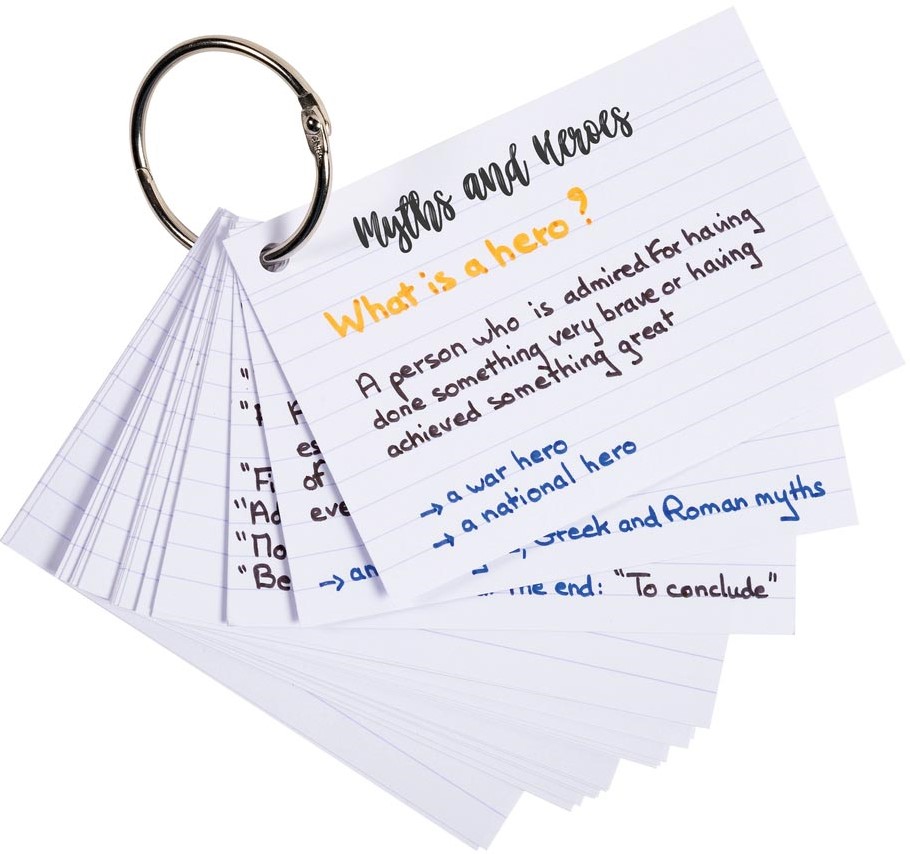 Myths and Heroes
What is a hero?
A person who is admired for having
done something very brave or having
achieved something great
→ a war hero
→ a national hero
Greek and Roman myths
the end: "To conclude"
→ an
es
of
eve
"Fi
"Ad
"Mo
"Be